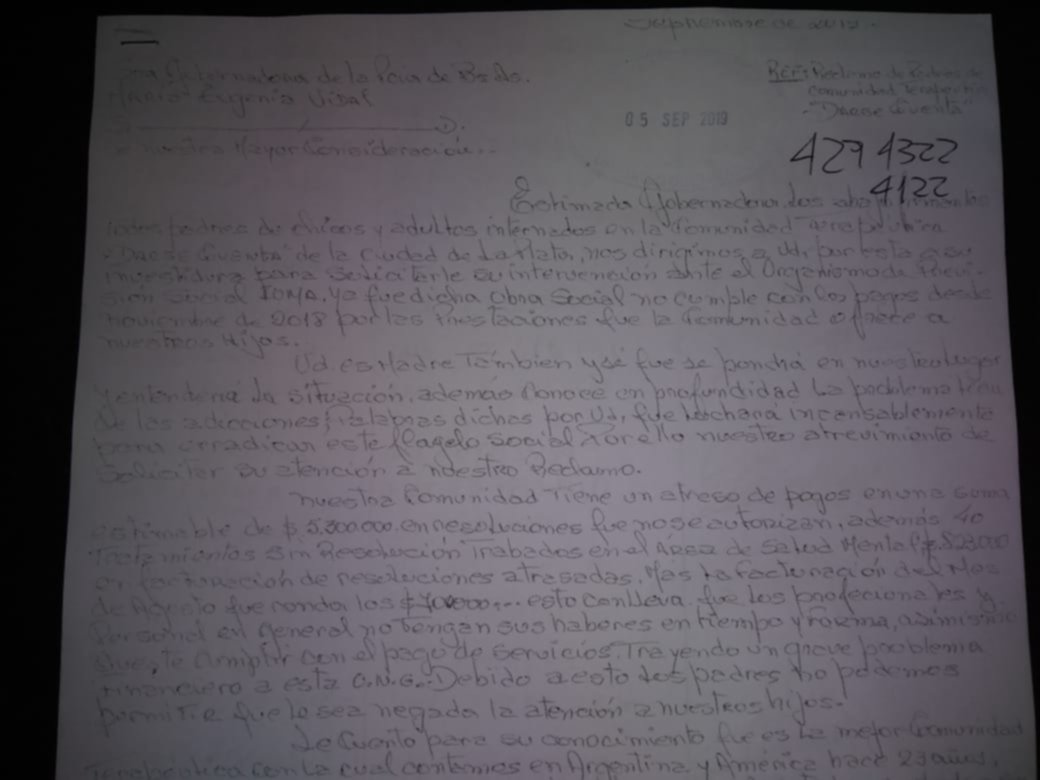 Septiembre de 2019.
Sra Gobernadora de la Pcia de Bs As.
María Eugenia Vidal
Ref: Reclamo de Padres de
comunidad Terapeutica
"Darse Cuenta"
05 SEP 2019
nuestra Mayor Consideración..
429 4322
4122
Estimada Gobernadora: los abajo firmantes
todos padres de chicos y adultos internados en la Comunidad
"Darse Cuenta" de la Ciudad de La Plata, nos dirigimos a Ud, por esta a su
investidura para solicitarle su intervención ante el Organismo de Previ-
sion Social IOMA. ya que dicha obra Social no cumple con los pagos desde
noviembre de 2018 por las Prestaciones que la Comunidad ofrece a
nuestros Hijos.
Ud. es Madre Tambien y sé que se pondrá en nuestro lugar
y entenderá la situación, ademas Conoce en profundidad La problematica
de las adicciones, Palabras dichas por Ud, que luchará incansablemente
para erradicar este flagelo Social Por ello nuestro atrevimiento de
Solicitar su atención a nuestro Reclamo.
nuestra Comunidad Tiene un atraso de pagos en una suma
estimable de $ 5.300.000. en resoluciones que no se autorizan, además 40
Tratamientos sin Resolución Trabados en el Área de Salud Mental
en facturación de resoluciones atrasadas. Mas la facturación del Mes
de Agosto que ronda los esto conlleva que los profecionales y
Personal en general no tengan sus haberes en tiempo y forma, asimismo
cumplir con el pago de servicios. Trayendo un grave problema
financiero a esta O.N.G.. Debido a esto los padres no podemos
permitir que le sea negada la atención a nuestros hijos.-
Le Cuento para su conocimiento que es la mejor Comunidad
Terapéutica con la cual contamos en Argentina y América hace 23 años,